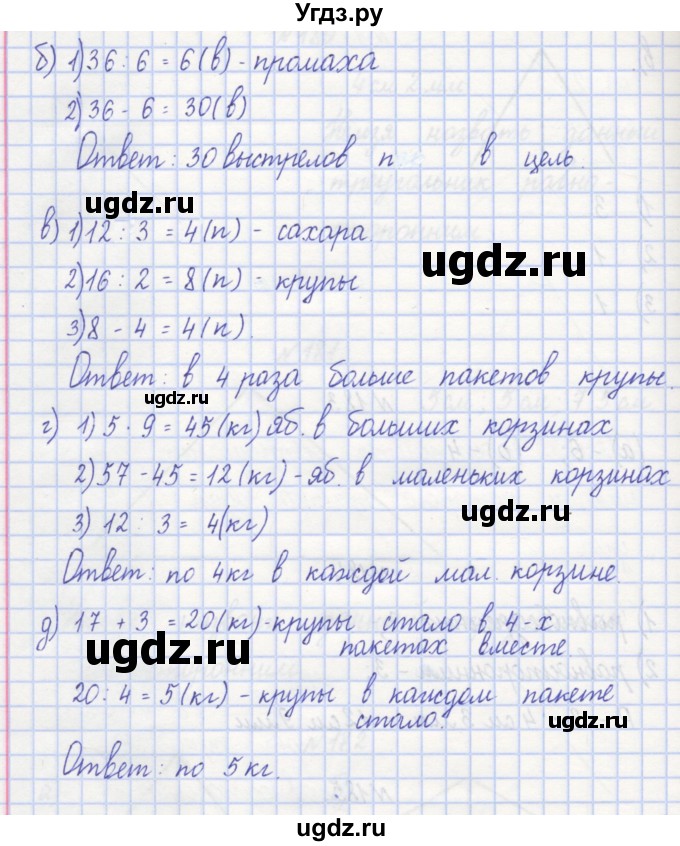 Угдз.ру
б) 1) 36 : 6 = 6 (в) - промаха
2) 36 - 6 = 30 (в)
Ответ: 30 выстрелов п в цель.
ugdz.ru
в) 1) 12 : 3 = 4 (п) - сахара.
ugdz.ru
2) 16 : 2 = 8 (п) - крупы
3) 8 - 4 = 4 (п).
Ответ: в 4 раза больше пакетов крупы.
ugdz.ru
г) 1) 5 · 9 = 45 (кг) яб. в больших корзинах
2) 57 - 45 = 12 (кг) - яб. в маленьких корзинах
3) 12 : 3 = 4 (кг)
ugdz.ru
Ответ: по 4 кг в каждой мал. корзине.
д) 17 + 3 = 20 (кг) - крупы стало в 4-х
пакетах вместе
ugdz.ru
20 : 4 = 5 (кг) - крупы в каждом пакете
стало.
ugdz.ru
Ответ: по 5 кг.
ugdz.ru